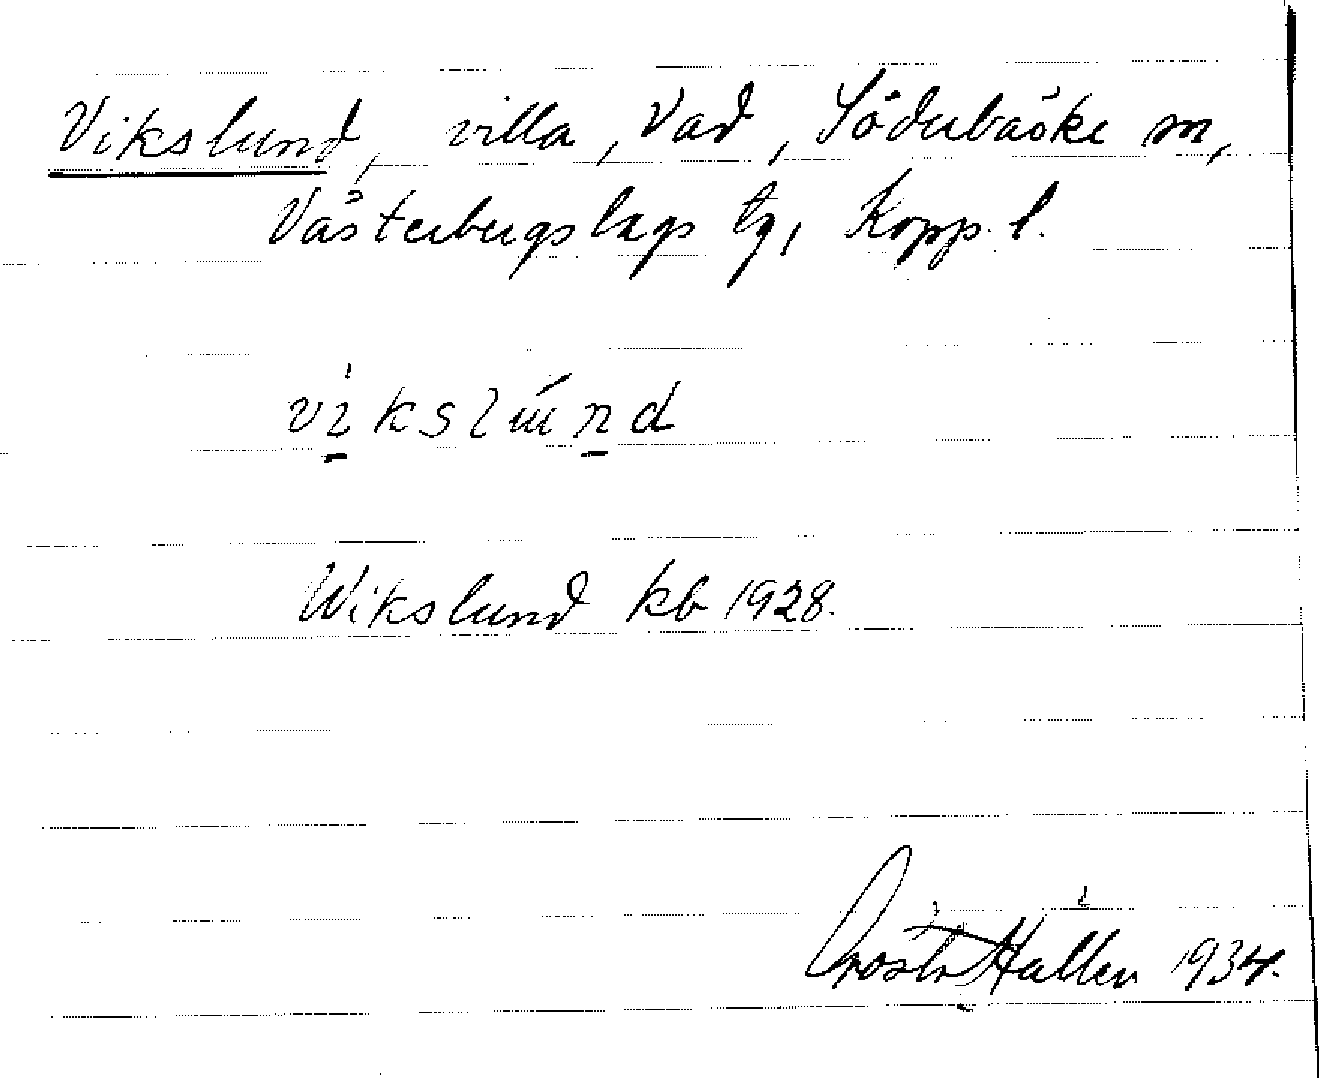 Vikslund, villa, Vad, Söderbärke sn,
Västerbergslags tg, Kopp. l.
vikslund
Wikslund kb 1928.
Gösta Hallén 1934.